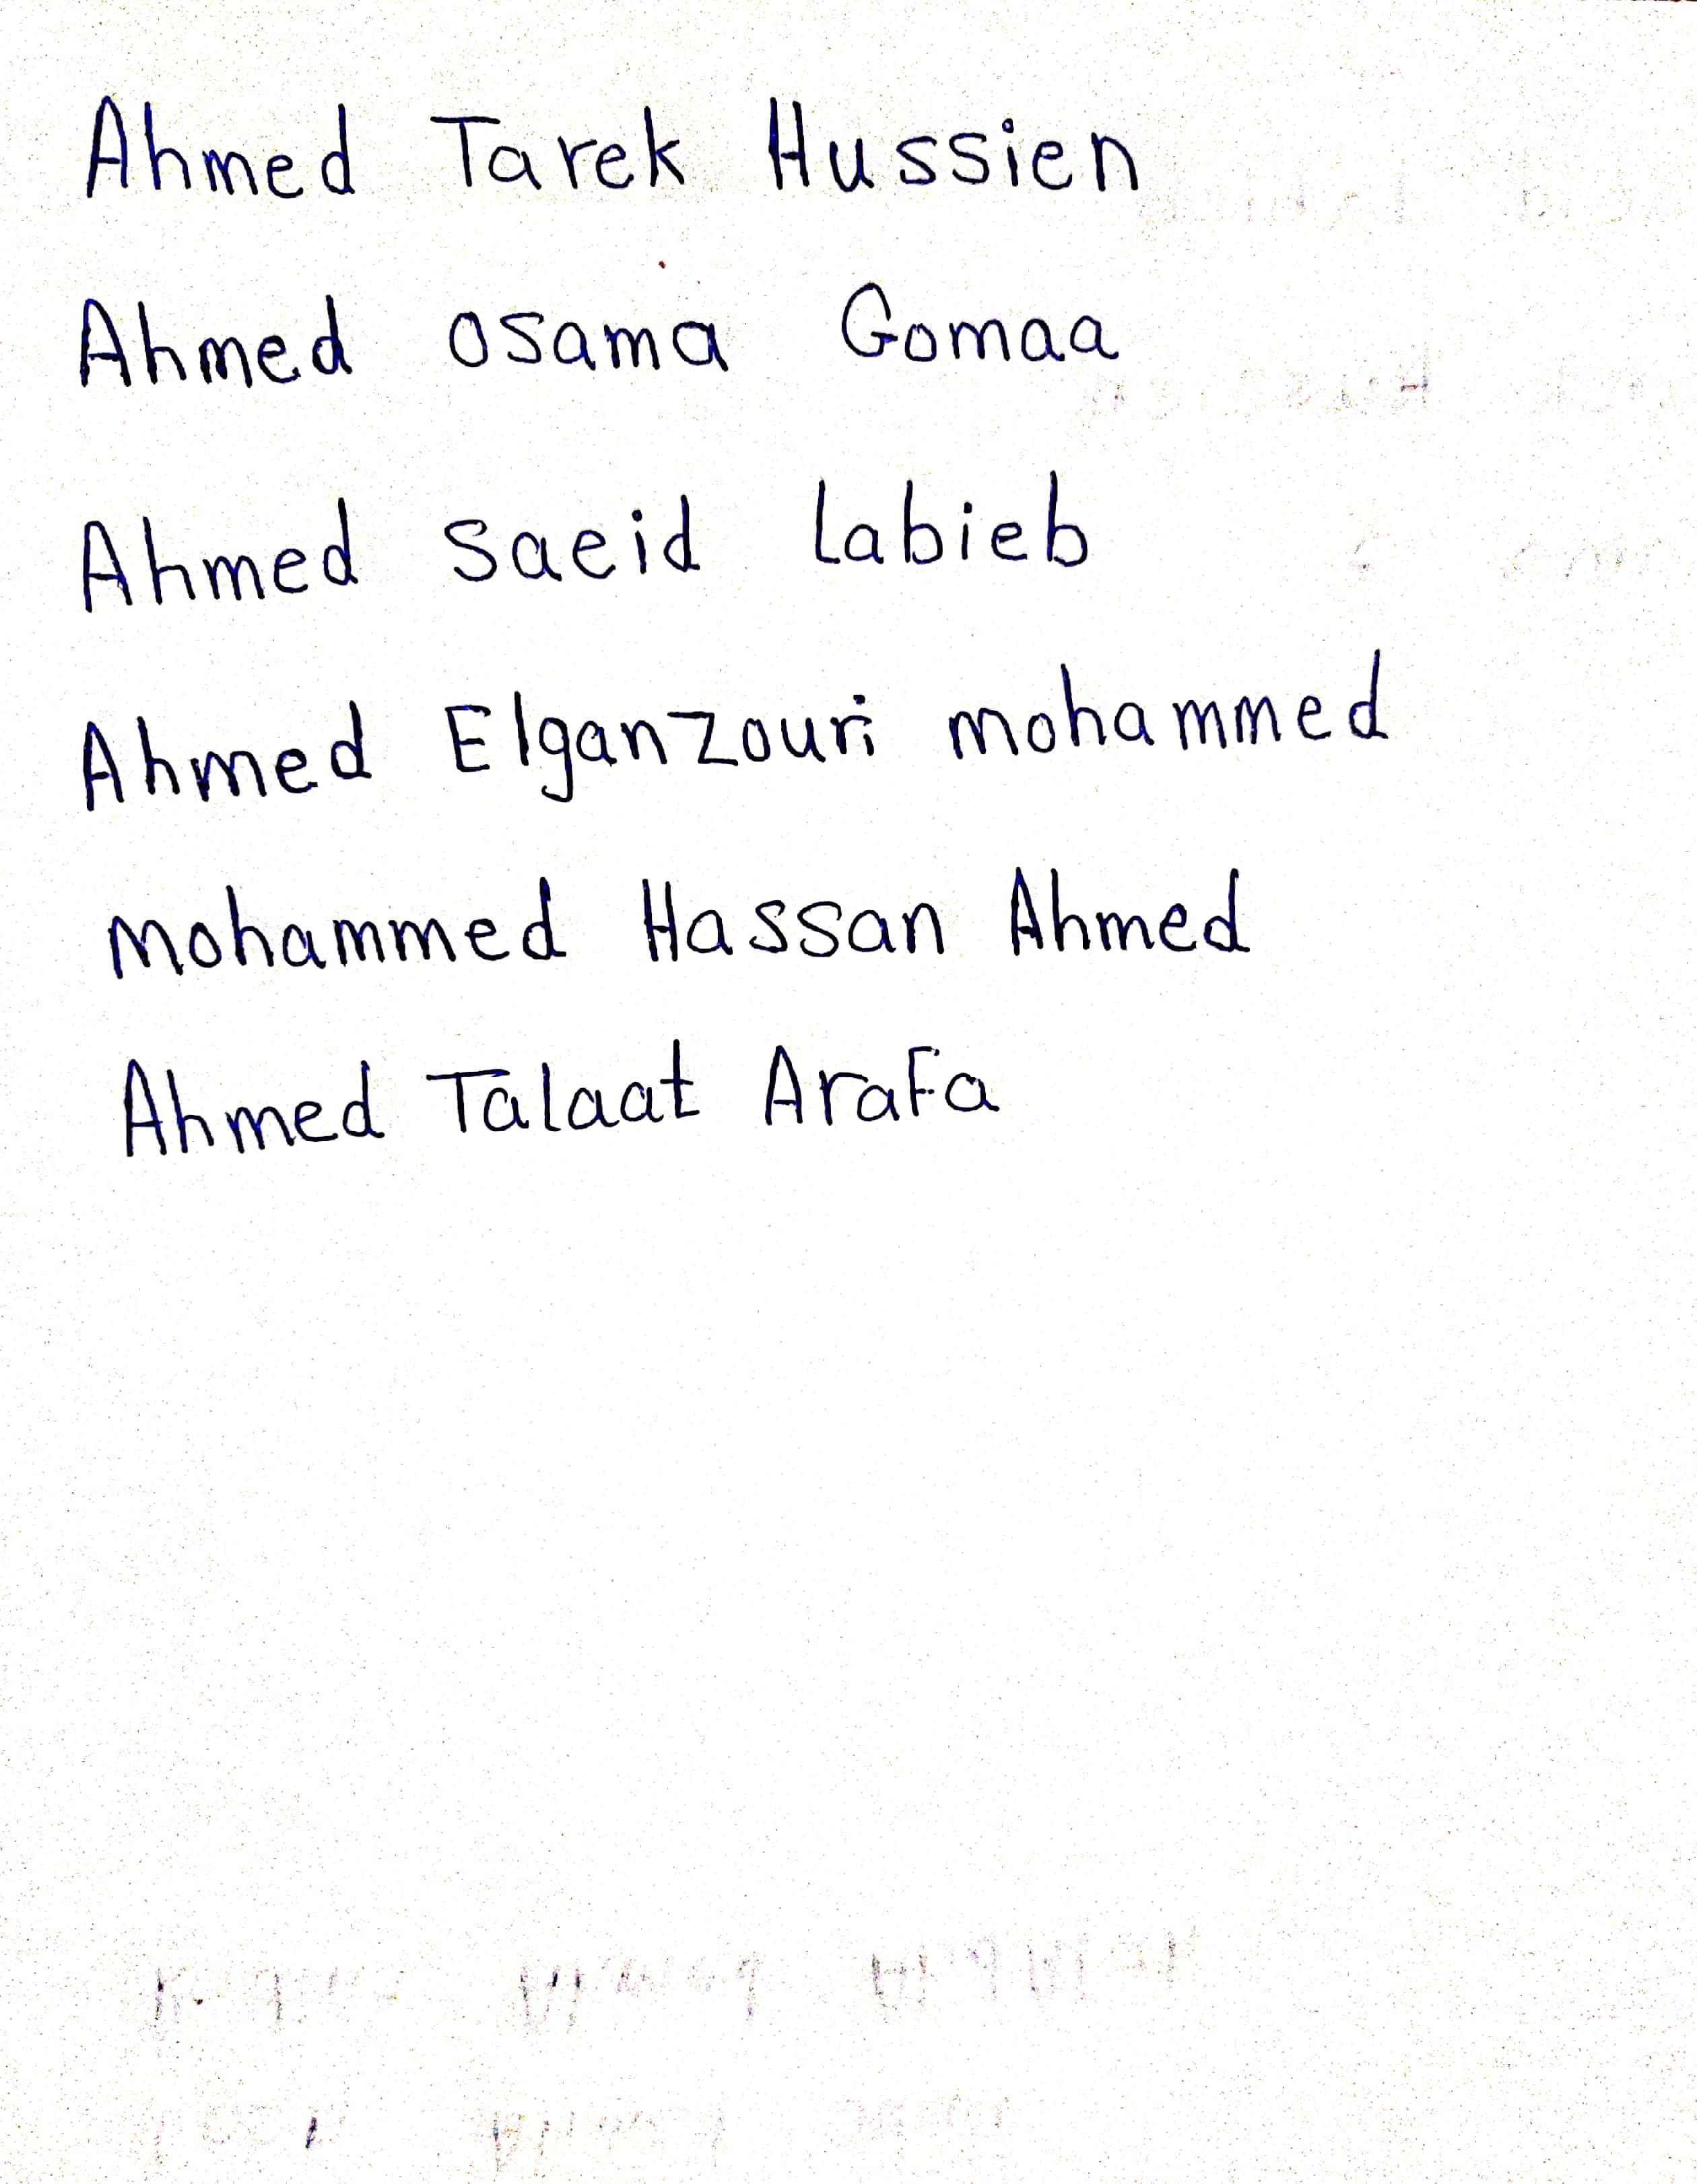 Ahmed Tarek Hussien
Ahmed osama Gomaa
Ahmed saeid Labieb
Ahmed Elganzouri mohammed
mohammed Hassan Ahmed
Ahmed Talaat Arafa